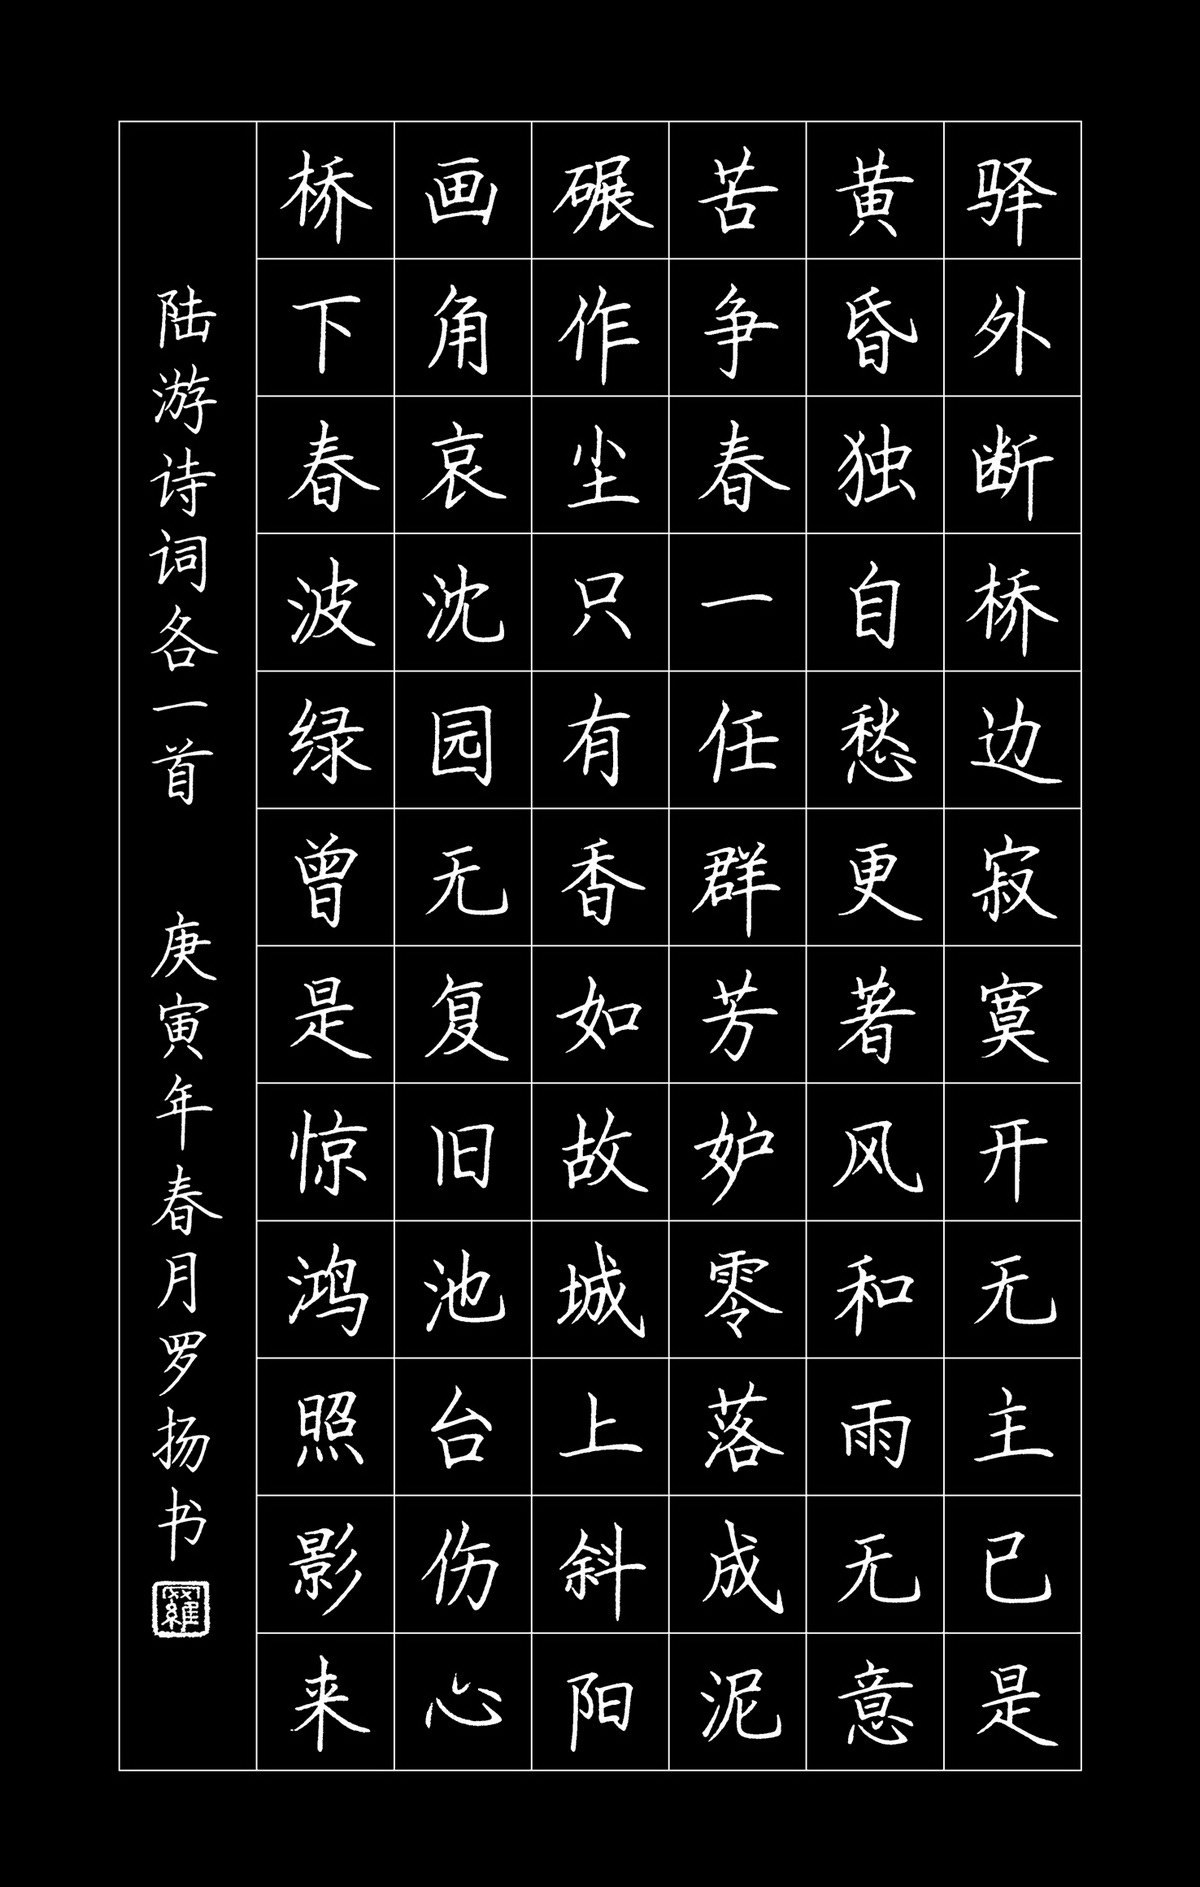 驿外断桥边寂寞开无主已是
黄昏独自愁更著风和雨无意
苦争春一任群芳妒零落成泥
碾作尘只有香如故城上斜阳
画角哀沈园无复旧池台伤心
桥下春波绿曾是惊鸿照影来
陆游诗词各一首 庚寅年春月罗扬书
羅